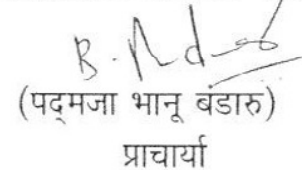 (पद्मजा भानू बंडारु)
प्राचार्या